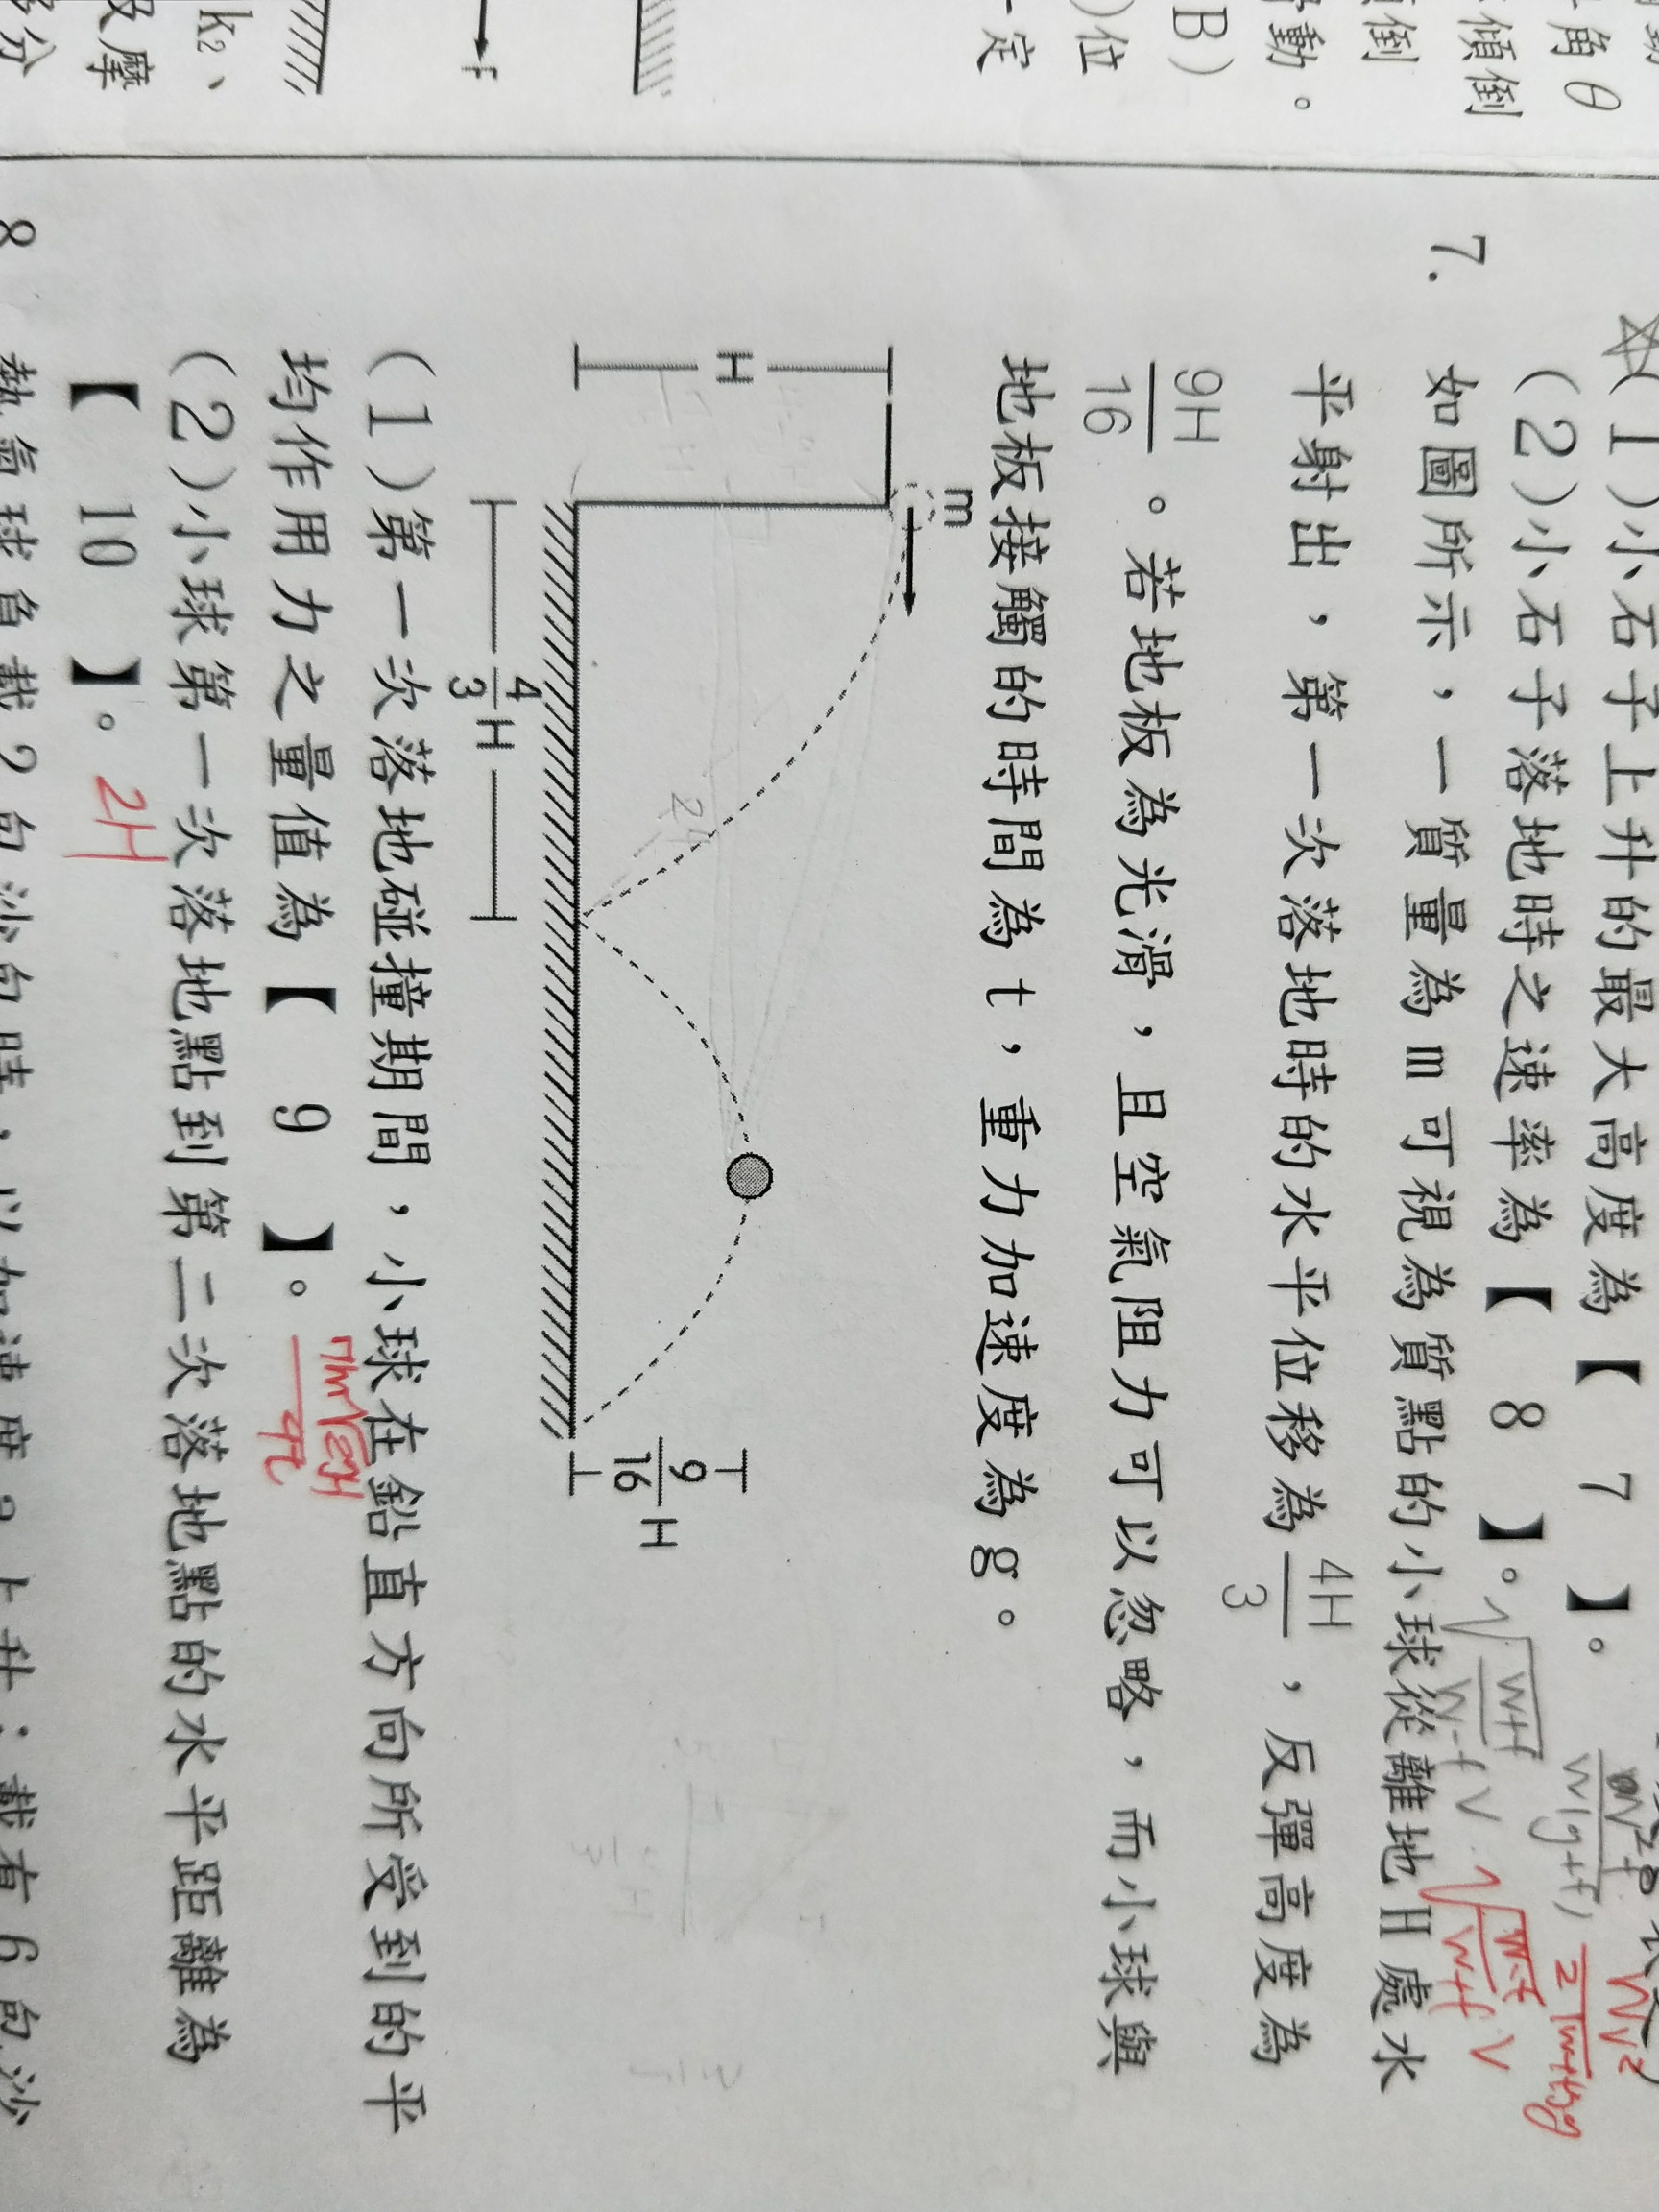 角θ
傾倒
倒
動。
B)
)位
一定
F
k₂、
及摩
(1)小石子上升的最大高度為【 7 】。
(2)小石子落地時之速率為【 8 】。
7. 如圖所示，一質量為m可視為質點的小球從離地H處水
平射出，第一次落地時的水平位移為4H/3，反彈高度為
9H/16。若地板為光滑，且空氣阻力可以忽略，而小球與
地板接觸的時間為t，重力加速度為g。
m
H
4/3 H
9/16 H
(1)第一次落地碰撞期間，小球在鉛直方向所受到的平
均作用力之量值為【 9 】。
(2)小球第一次落地點到第二次落地點的水平距離為
【 10 】。 2H